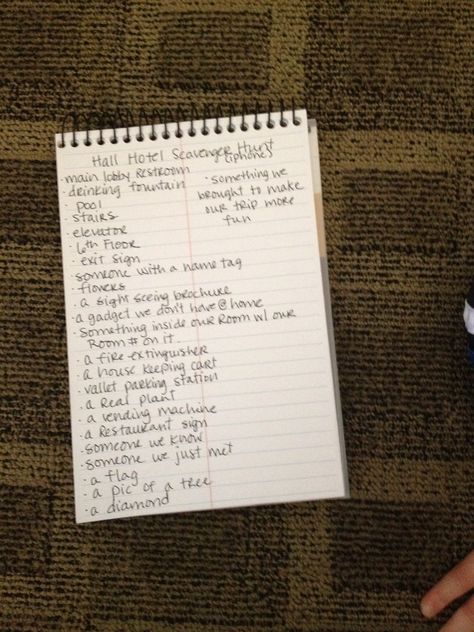 Hall Hotel Scavenger Hunt
(iphone)
· main lobby restroom
· drinking fountain
· pool
· stairs
· elevator
· 6th Floor
· exit sign
· someone with a name tag
· flowers
· a sight seeing brochure
· a gadget we don't have @ home
· something inside our Room w/ our
Room # on it.
· a fire extinguisher
· a house keeping cart
· vallet parking station
· a Real plant
· a vending machine
· a Restaurant sign
· someone we know
· someone we just met
· a flag
· a pic of a tree
· a diamond
· something we
brought to make
our trip more
fun